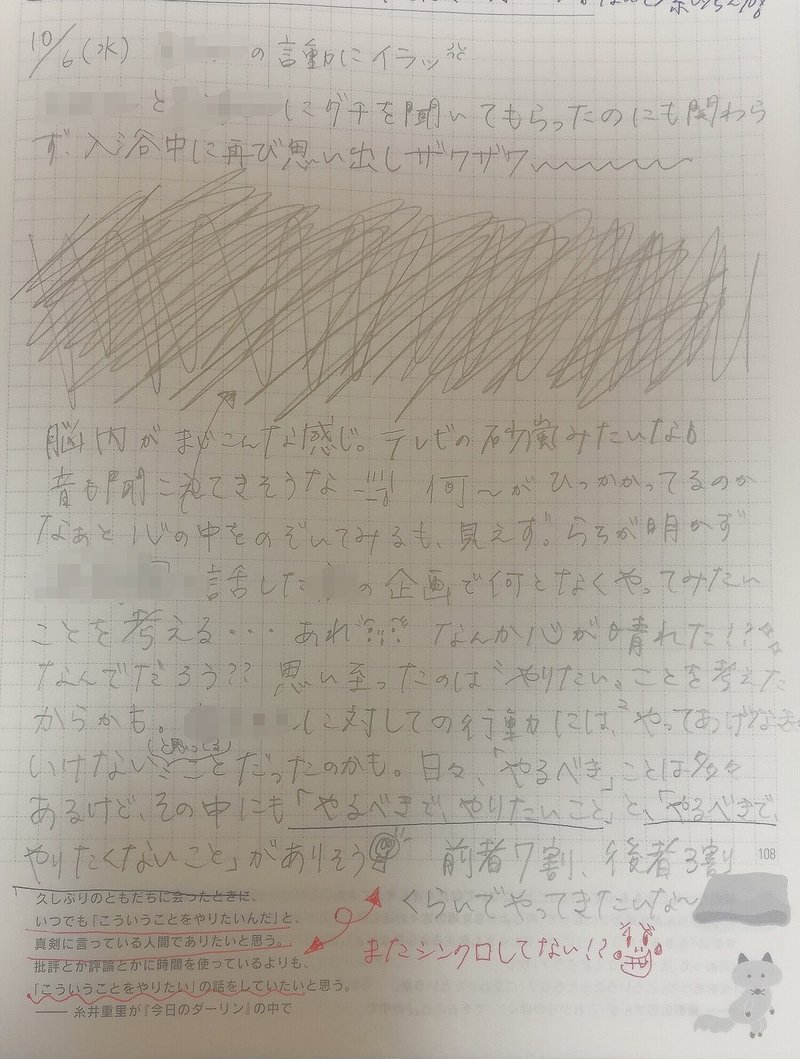 10/6(水) の言動にイラッ
と にグチを聞いてもらったのにも関わら
ず、入浴中に再び思い出しザワザワ
脳内がまじこんな感じ。テレビの砂嵐みたいな
音も聞こえてきそうな 何〜がひっかかってるのか
なぁと心の中をのぞいてみるも、見えず。らちが明かず
話した の企画で何となくやってみたい
ことを考える・・・ あれ??? なんか心が晴れた!?
なんでだろう?? 思い至ったのは〝やりたい〟ことを考えた
からかも。 に対しての行動には、〝やってあげなきゃ
いけない〟(と思ってる)ことだったのかも。日々、「やるべき」ことは多々
あるけど、その中にも「やるべきで、やりたいこと」と、「やるべきで、
やりたくないこと」がありそう 前者7割、後者3割
108
くらいでやってきたいな〜
またシンクロしてない!?
久しぶりのともだちに会ったときに、
いつでも「こういうことをやりたいんだ」と、
真剣に言っている人間でありたいと思う。
批評とか評論とかに時間を使っているよりも、
「こういうことをやりたい」の話をしていたいと思う。
── 糸井重里が『今日のダーリン』の中で